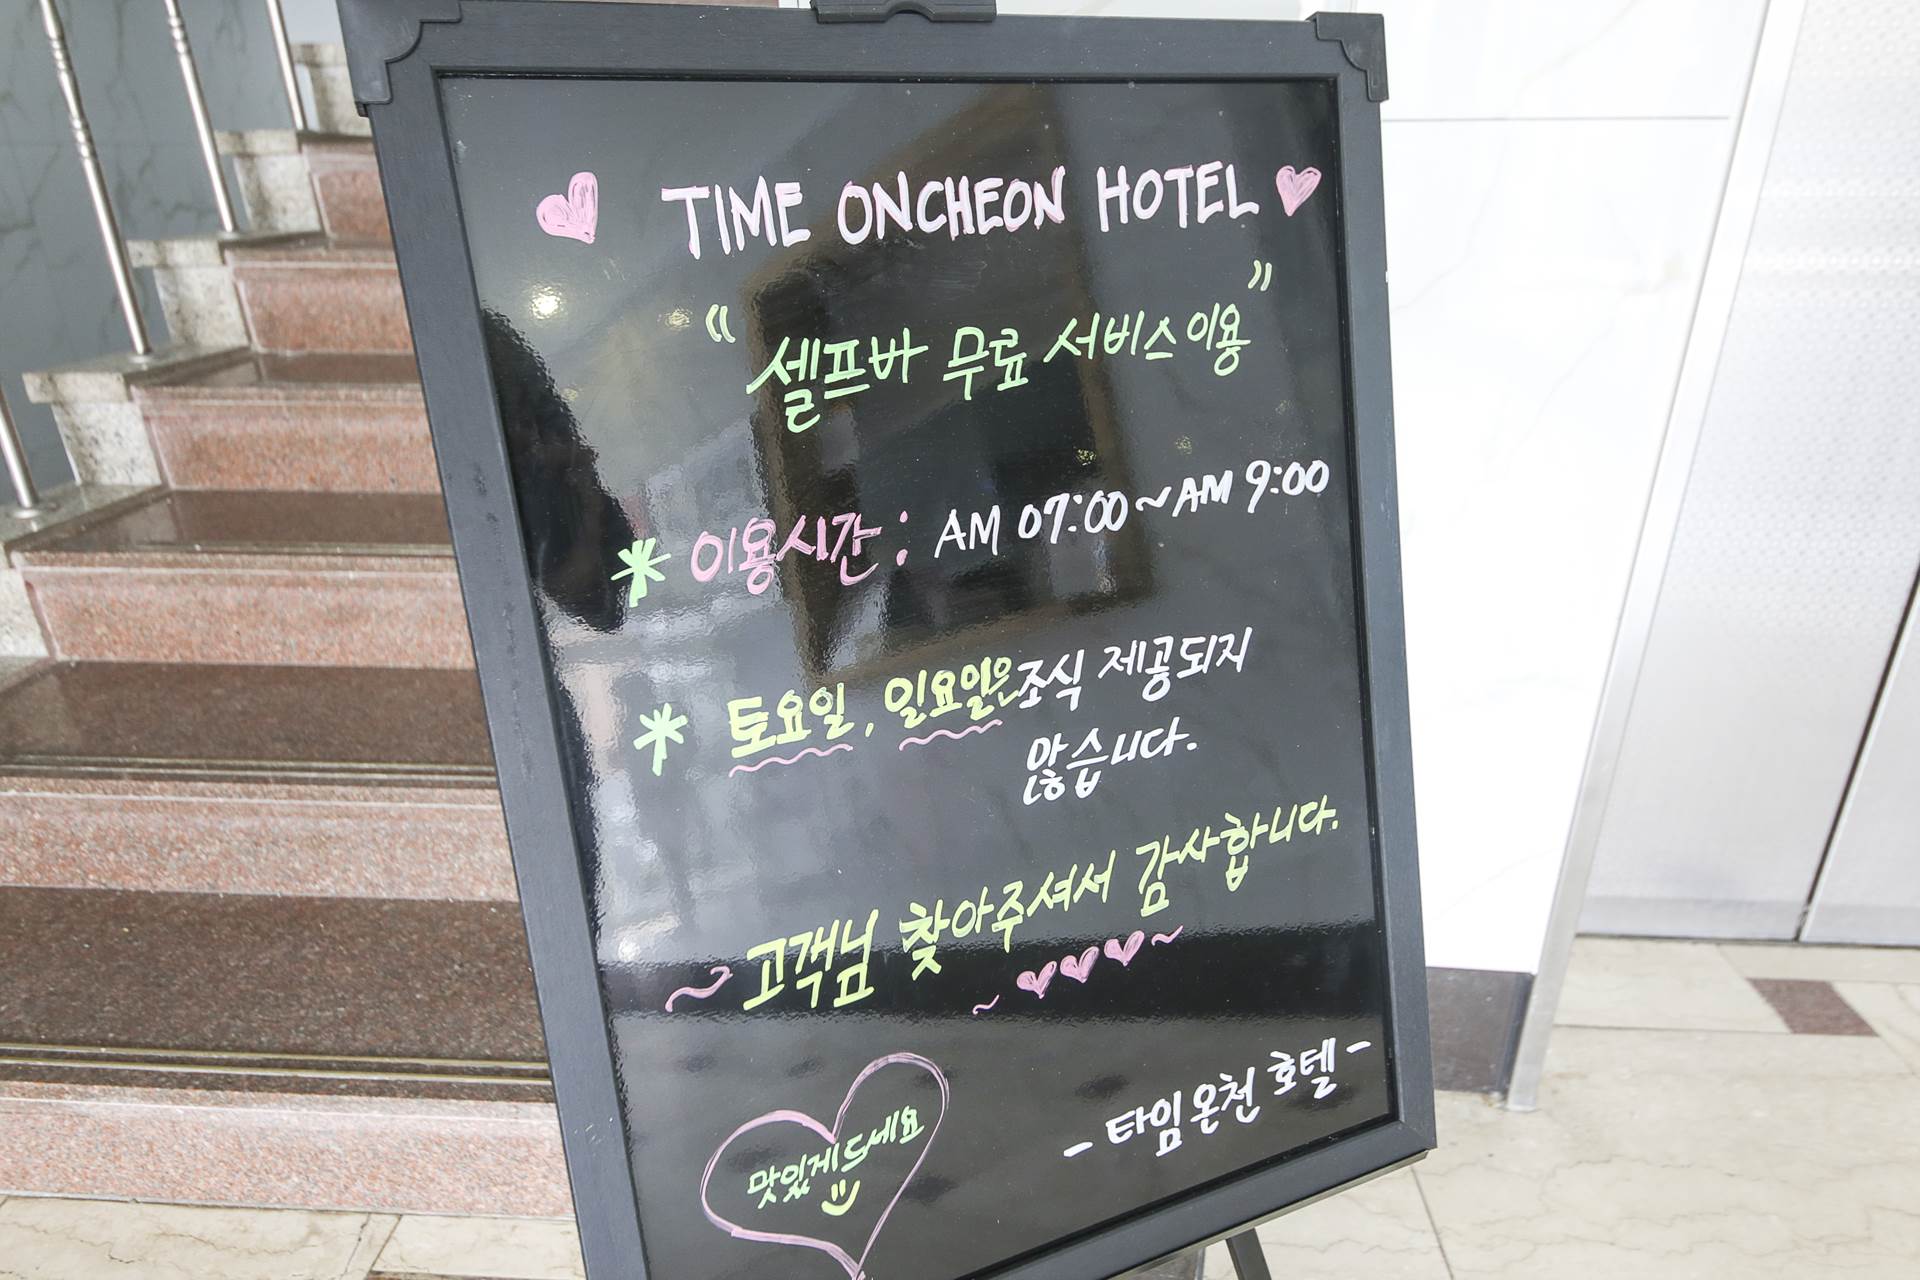 TIME ONCHEON HOTEL
“셀프바 무료 서비스 이용”
* 이용시간 : AM 07:00 ~ AM 9:00
* 토요일, 일요일은 조식 제공되지
않습니다.
~ 고객님 찾아주셔서 감사합니다.
~ ♥♥♥ ~
맛있게드세요
- 타임 온천 호텔 -